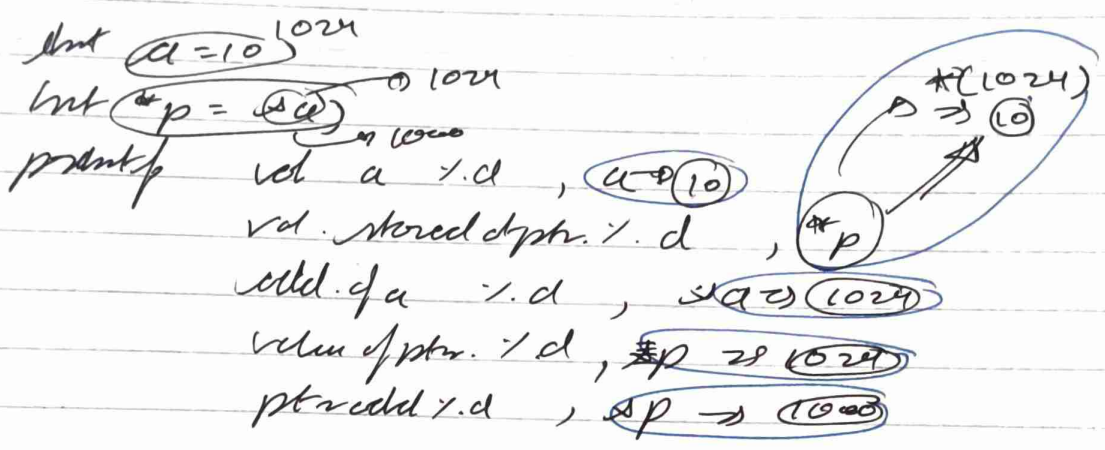 int a = 10 1024
int *p = &a → 1024
→ 1000
*(1024)
⇒ 10
printf val a %.d , a → 10
val. stored at ptr. %. d , *p
add. of a %.d , &a ⇒ 1024
value of ptr. %d , p ⇒ 1024
ptr add %.d , &p → 1000